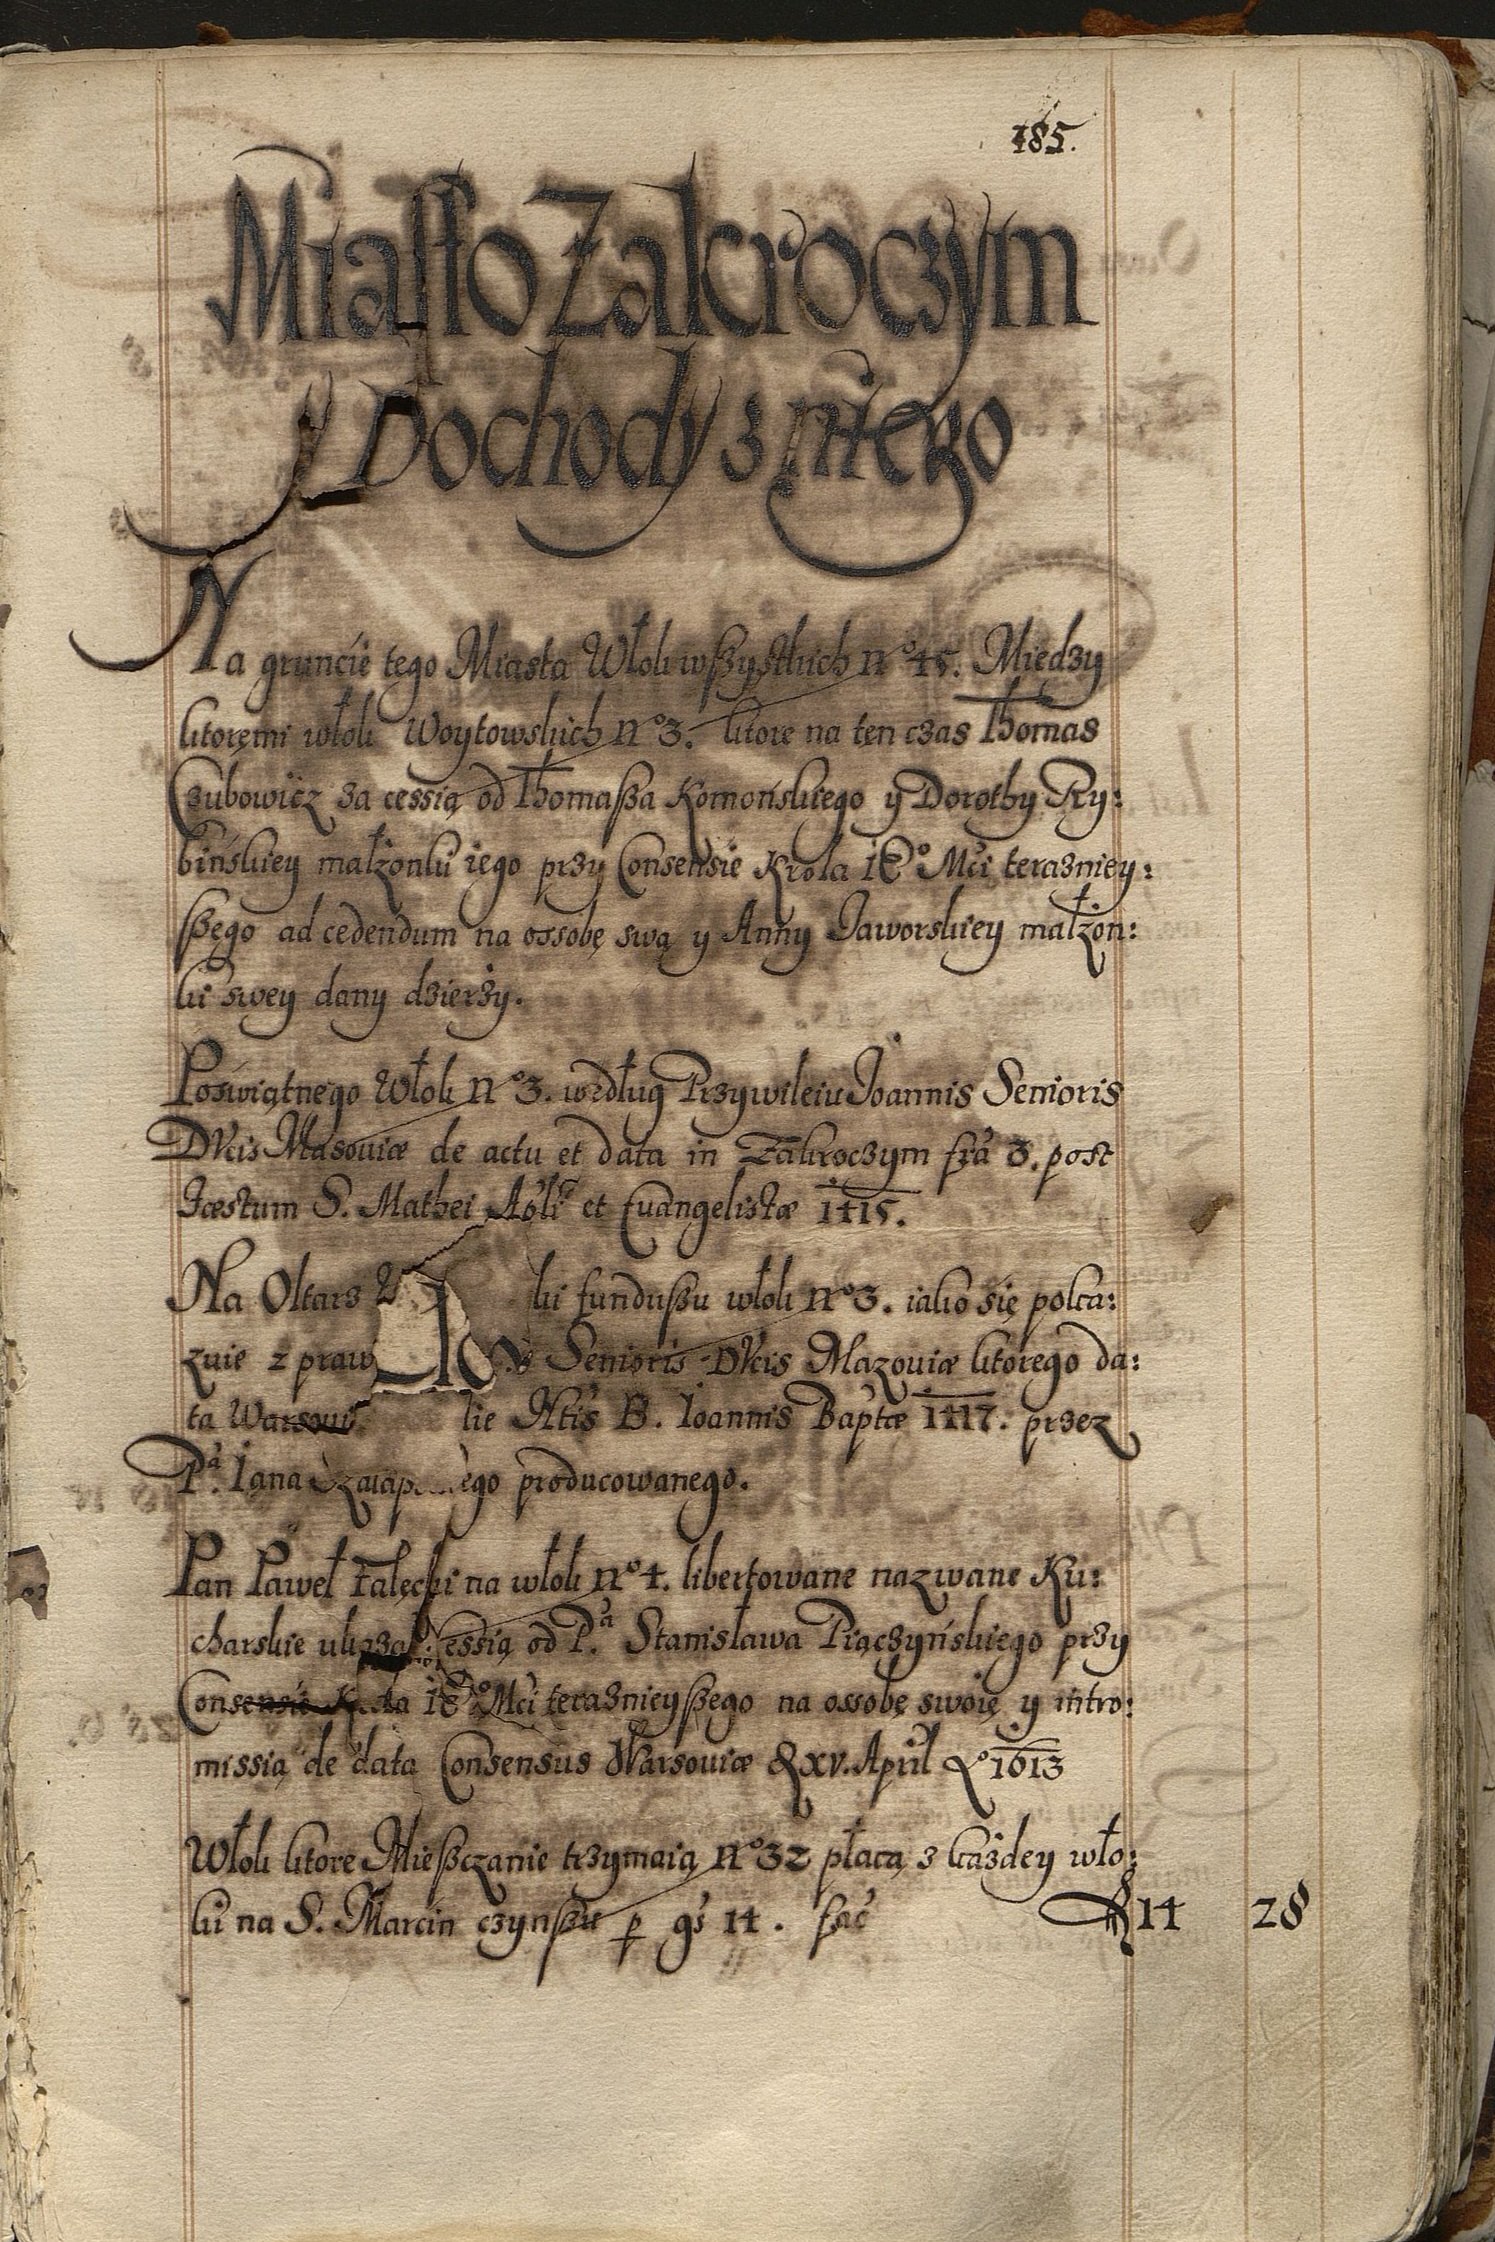 185.
Miasto Zakroczym
y Dochody z niego
Na gruncie tego Miasta Włok wßystkich Nº 45. Między
ktoremi włok Woytowskich Nº 3. ktore na ten czas Thomas
Czubowicz za cessią od Thomaßa Komońskiego y Dorothy Ry:
bińskiey małżonki iego przy Consensie Krola IEº Mci terazniey:
ßego ad cedendum na ossobę swą y Anny Jaworskiey małżon:
ki swey dany dzierży.
Poświątnego Włok Nº 3. według Przywileiu Ioannis Senioris
Ducis Masouiæ de actu et data in Zakroczym fra 3. post
Festum S. Mathei Apli et Euangelistæ 1415.
Na Oltarz ki fundußu włok Nº 3. iako się poka:
zuie z praw Senioris Ducis Mazouiæ ktorego da:
ta Warsoui lie Ntis B. Ioannis Baptæ 1417. przez
Pª. Iana ego producowanego.
Pan Paweł Załęcki na włok Nº 4. libertowane nazwane Ku:
charskie ukazał Cessią od P.ª Stanisława Piączyńskiego przy
Consensie Krola IEº Mci teraznieyßego na ossobę swoię y intro:
missią de data Consensus Warsouiæ xv. April 1613
Włok ktore Mießczanie trzymaią Nº 32 płacą z każdey wło:
ki na S. Marcin czynßu p gs 14. fac 14 28